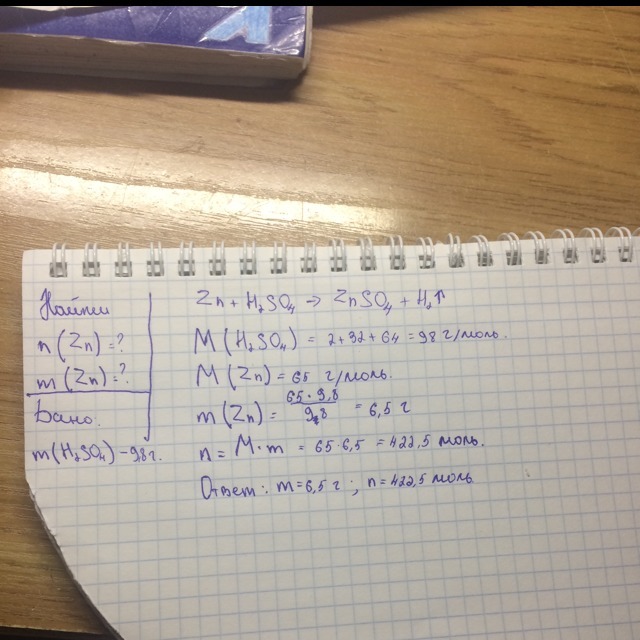 Найти
n(Zn)=?
m(Zn)=?
Дано.
m(H₂SO₄)-9,8г.
Zn+H₂SO₄→ZnSO₄+H₂↑
M(H₂SO₄)=2+32+64=98г/моль.
M(Zn)=65 г/моль.
m(Zn)=65·9,8/9,8=6,5г
n=M·m=65·6,5=422,5моль.
Ответ: m=6,5г; n=422,5моль.